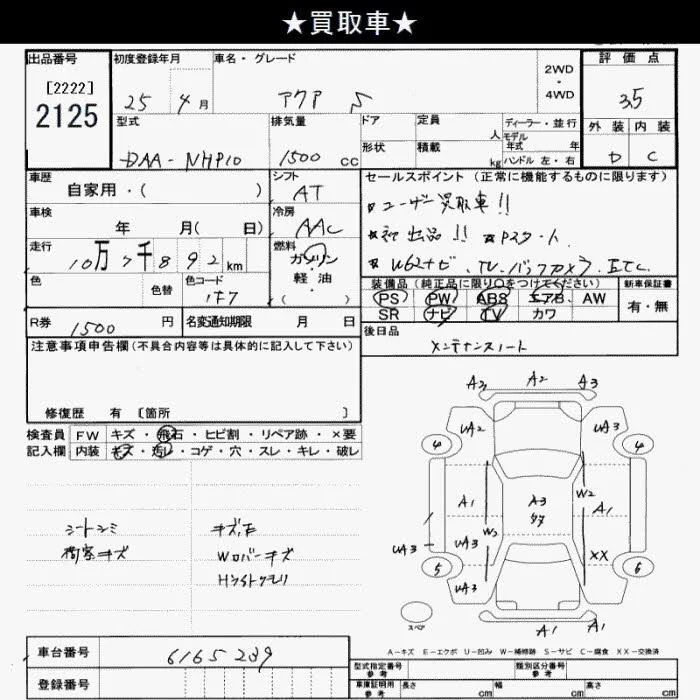 ★買取車★
出品番号
[2222]
2125
初度登録年月
25 4月
車名・グレード
アクア S
2WD
・
4WD
評価点
3.5
型式
DAA-NHP10
排気量
1500 cc
ドア
形状
定員
人
積載
kg
ディーラー・並行
モデル
年式 年
ハンドル 左・右
外装 内装
D C
車歴
自家用・( )
シフト
AT
車検
年 月( 日)
冷房
AAC
走行
10万7千892km
燃料
ガソリン
・
軽油
( )
色
色替
色コード
1F7
R券 1500 円
名変通知期限 月 日
セールスポイント(正常に機能するものに限ります)
★ユーザー買取車!!
★初出品!! ★Pスタート.
★W62ナビ、TV、バックカメラ、ETC.
装備品(純正品に限り○をつけてください)
PS PW ABS エアB AW
SR ナビ TV カワ
新車保証書
有・無
後日品
メンテナンスノート
注意事項申告欄(不具合内容等は具体的に記入して下さい)
修復歴 有 〔箇所 〕
検査員
記入欄
FW キズ・飛石・ヒビ割・リペア跡・×要
内装 キズ・汚レ・コゲ・穴・スレ・キレ・破レ
シートシミ
荷室キズ
Wロバーキズ
Hライトクモリ
A2 A2 A3
UA2 UA3
4 4
A1 A3 W2 A1
W2
UA3 UA3 XX
5 6
UA3
A1 A1
スペア
A-キズ E-エクボ U-凹み W-補修跡 S-サビ C-腐食 XX-交換済
車台番号 6165239
登録番号
型式指定番号
参考
類別区分番号
参考
車庫証明用
参考
長さ cm 幅 cm 高さ cm